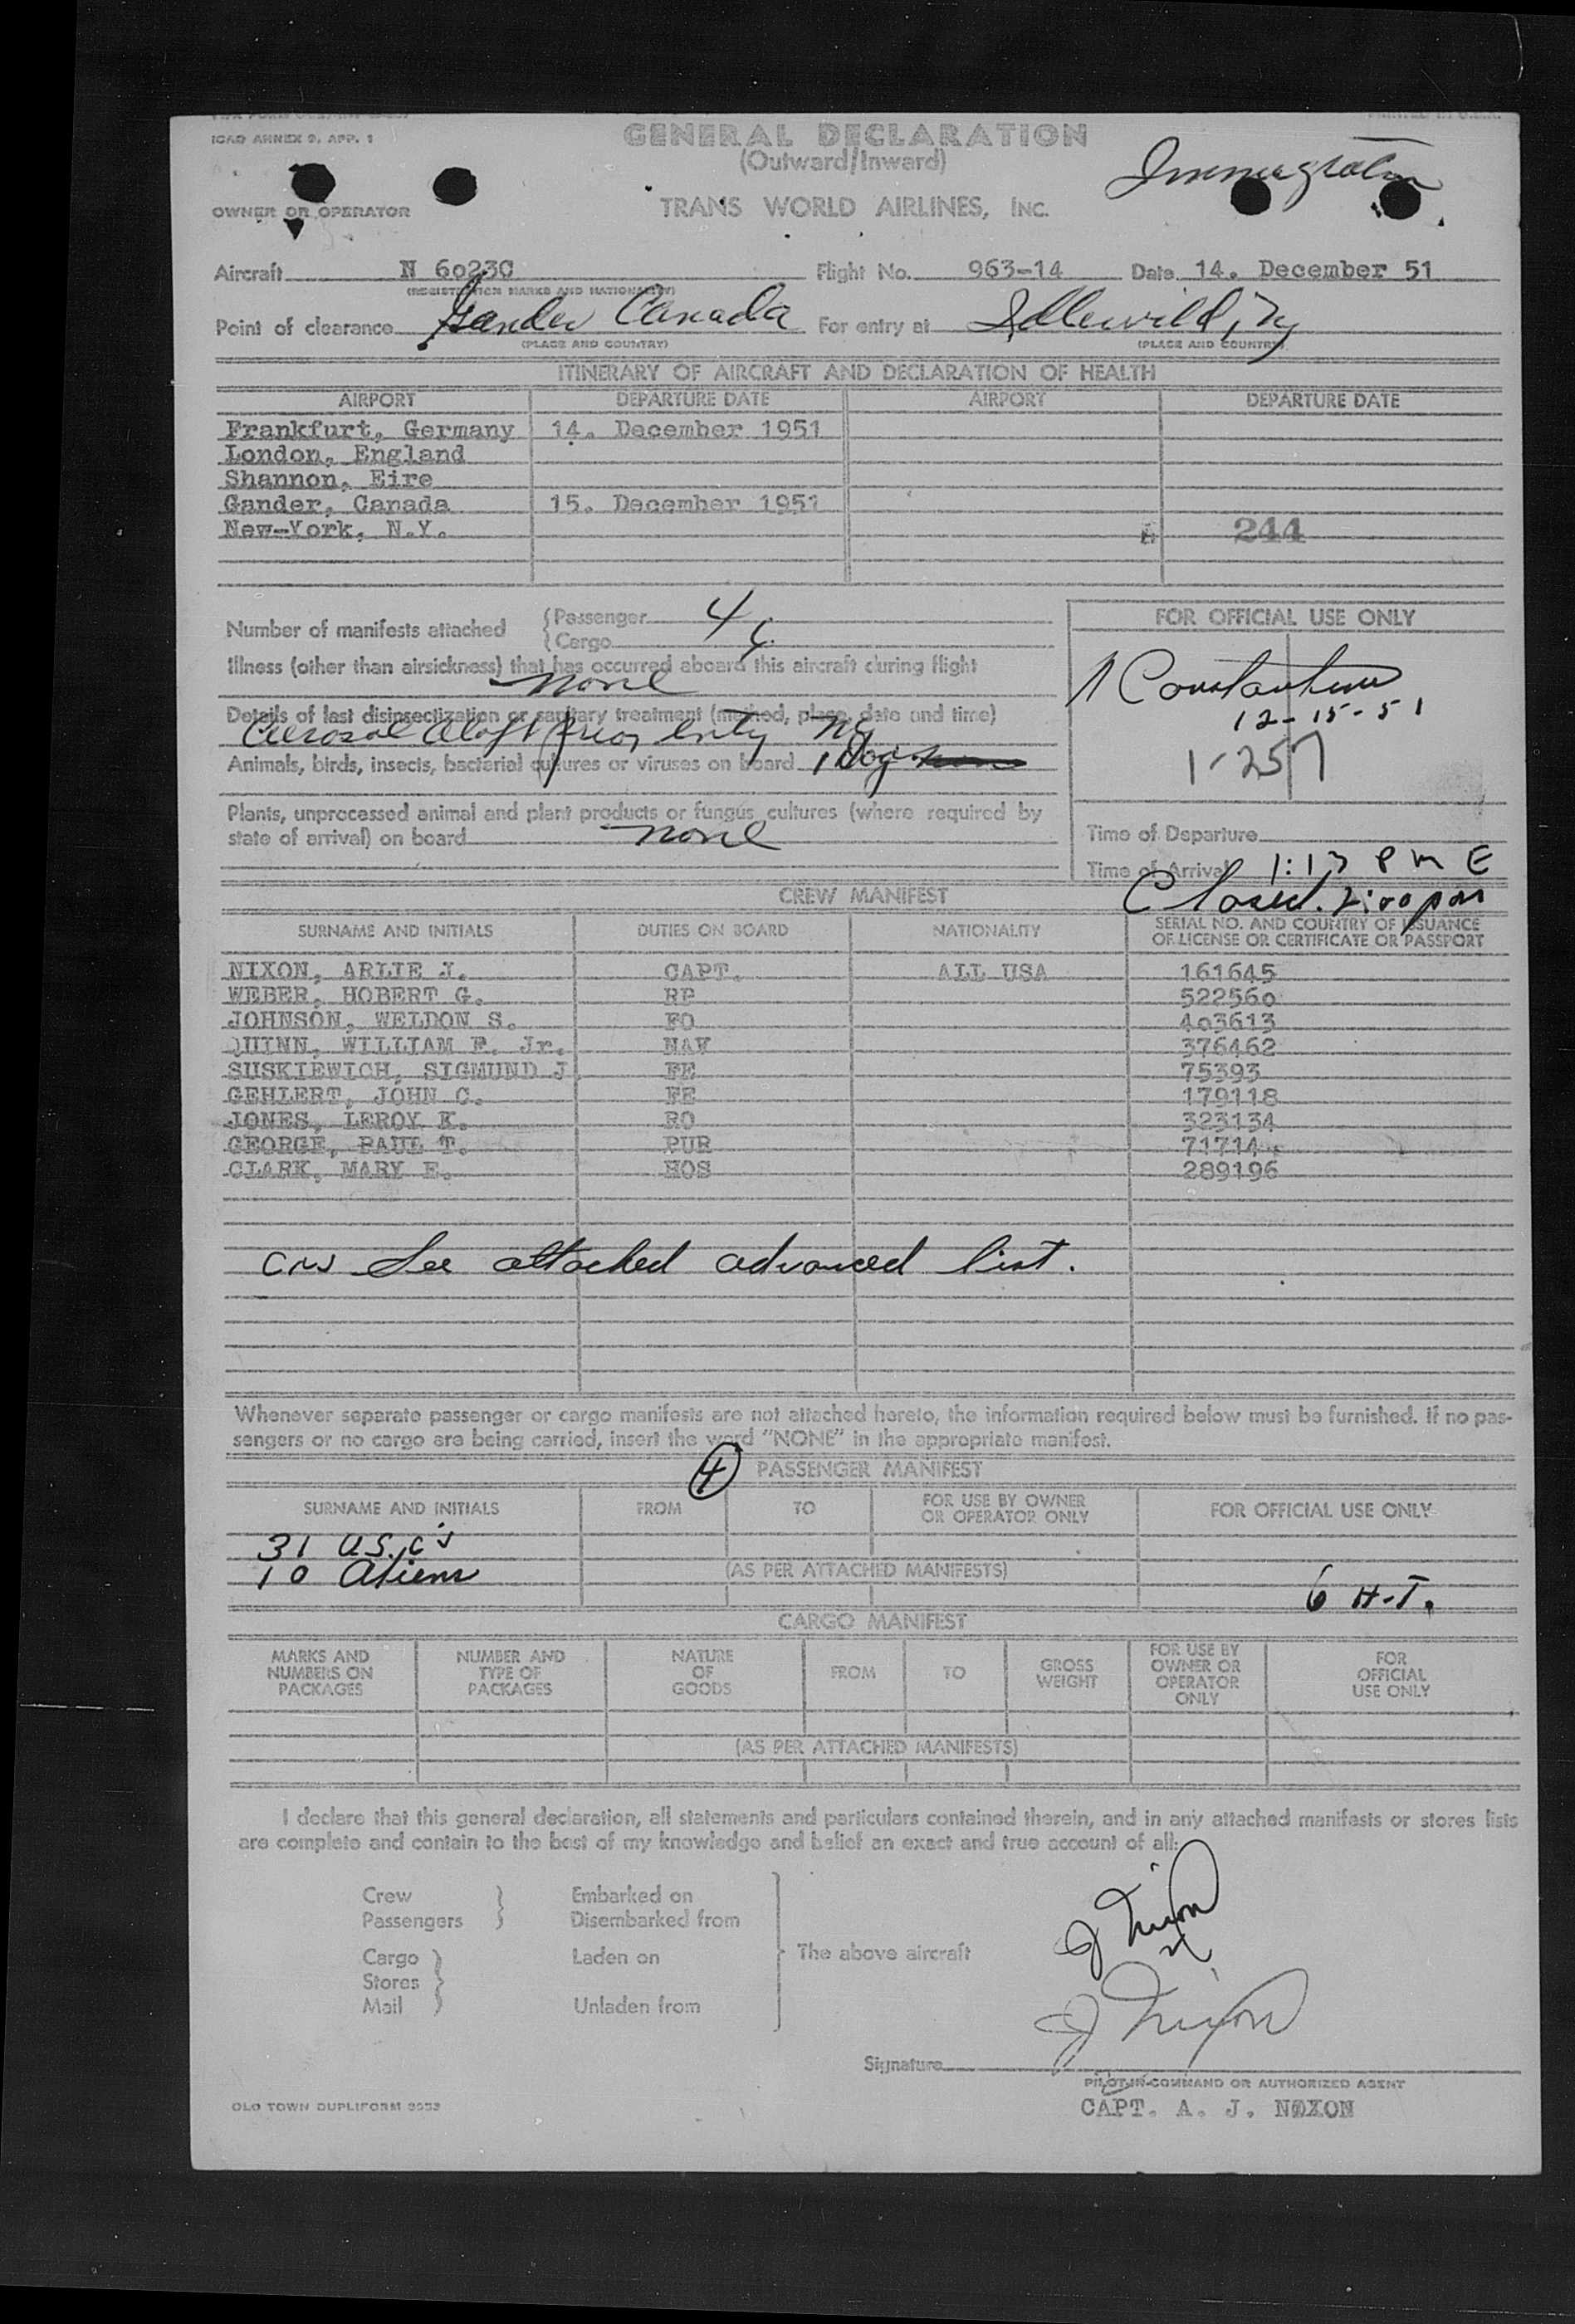 ICAO ANNEX 9, APP. 1
GENERAL DECLARATION
(Outward/Inward)
Immigration
OWNER OR OPERATOR
TRANS WORLD AIRLINES, INC.
Aircraft N 6023C Flight No. 963-14 Date 14. December 51
(REGISTRATION MARKS AND NATIONALITY)
Point of clearance Gander Canada For entry at Idlewild, NY
(PLACE AND COUNTRY) (PLACE AND COUNTRY)
ITINERARY OF AIRCRAFT AND DECLARATION OF HEALTH
AIRPORT DEPARTURE DATE AIRPORT DEPARTURE DATE
Frankfurt, Germany 14. December 1951
London, England
Shannon, Eire
Gander, Canada 15. December 1951
New-York, N.Y. 244
Number of manifests attached Passenger 4
Cargo
FOR OFFICIAL USE ONLY
Illness (other than airsickness) that has occurred aboard this aircraft during flight
none
Constantine
12-15-51
1-257
Details of last disinsectization or sanitary treatment (method, place, date and time)
Aerosol Aloft prior entry NY
Animals, birds, insects, bacterial cultures or viruses on board 1 Dog
Plants, unprocessed animal and plant products or fungus cultures (where required by
state of arrival) on board none
Time of Departure
Time of Arrival 1:13 PM E
Closed. 2:00 pm
CREW MANIFEST
SURNAME AND INITIALS DUTIES ON BOARD NATIONALITY SERIAL NO. AND COUNTRY OF ISSUANCE
OF LICENSE OR CERTIFICATE OR PASSPORT
NIXON, ARLIE J. CAPT. ALL USA 161645
WEBER, HOBERT G. RP 522560
JOHNSON, WELDON S. FO 403613
QUINN, WILLIAM F. Jr. NAV 376462
SUSKIEWICH, SIGMUND J FE 75393
GEHLERT, JOHN C. FE 179118
JONES, LEROY K. RO 323134
GEORGE, PAUL T. PUR 71714
CLARK, MARY E. HOS 289196
See attached advanced list.
Whenever separate passenger or cargo manifests are not attached hereto, the information required below must be furnished. If no pas-
sengers or no cargo are being carried, insert the word "NONE" in the appropriate manifest.
4 PASSENGER MANIFEST
SURNAME AND INITIALS FROM TO FOR USE BY OWNER OR OPERATOR ONLY FOR OFFICIAL USE ONLY
31 U.S.C's
10 Aliens (AS PER ATTACHED MANIFESTS)
6 H.T.
CARGO MANIFEST
MARKS AND NUMBERS ON PACKAGES NUMBER AND TYPE OF PACKAGES NATURE OF GOODS FROM TO GROSS WEIGHT FOR USE BY OWNER OR OPERATOR ONLY FOR OFFICIAL USE ONLY
(AS PER ATTACHED MANIFESTS)
I declare that this general declaration, all statements and particulars contained therein, and in any attached manifests or stores lists
are complete and contain to the best of my knowledge and belief an exact and true account of all:
Crew Embarked on
Passengers Disembarked from
Cargo Laden on The above aircraft
Stores
Mail Unladen from
J Nixon
J Nixon
Signature
PILOT-IN-COMMAND OR AUTHORIZED AGENT
OLD TOWN DUPLIFORM
CAPT. A. J. NOXON